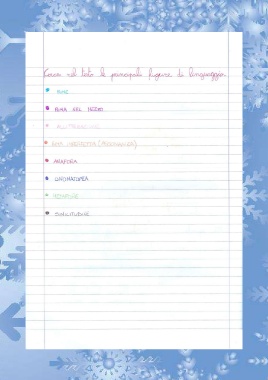 Cerca nel testo le principali figure di linguaggio
RIME
RIMA NEL MEZZO
ALLITTERAZIONE
RIMA IMPERFETTA (ASSONANZA)
ANAFORA
ONOMATOPEA
METAFORE
SIMILITUDINE